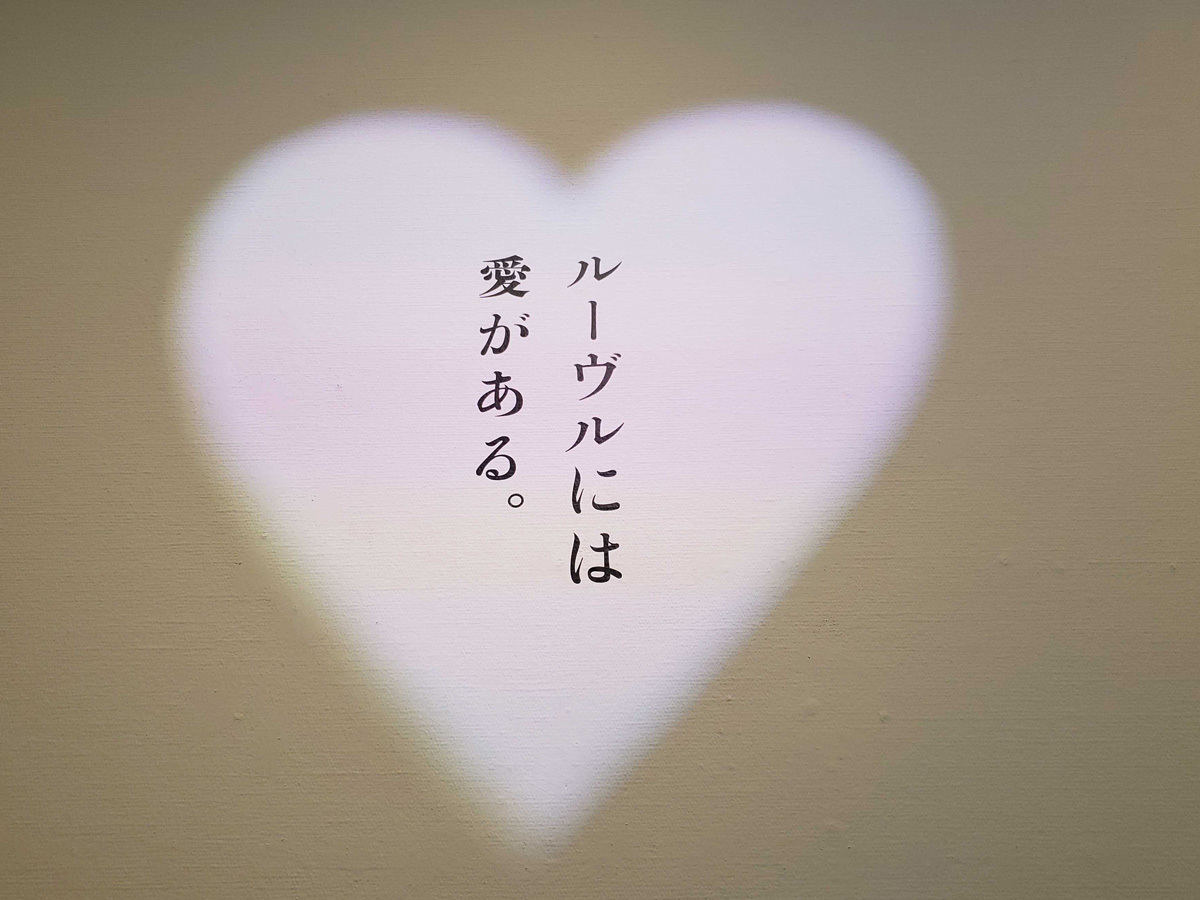 ルーヴルには
愛がある。